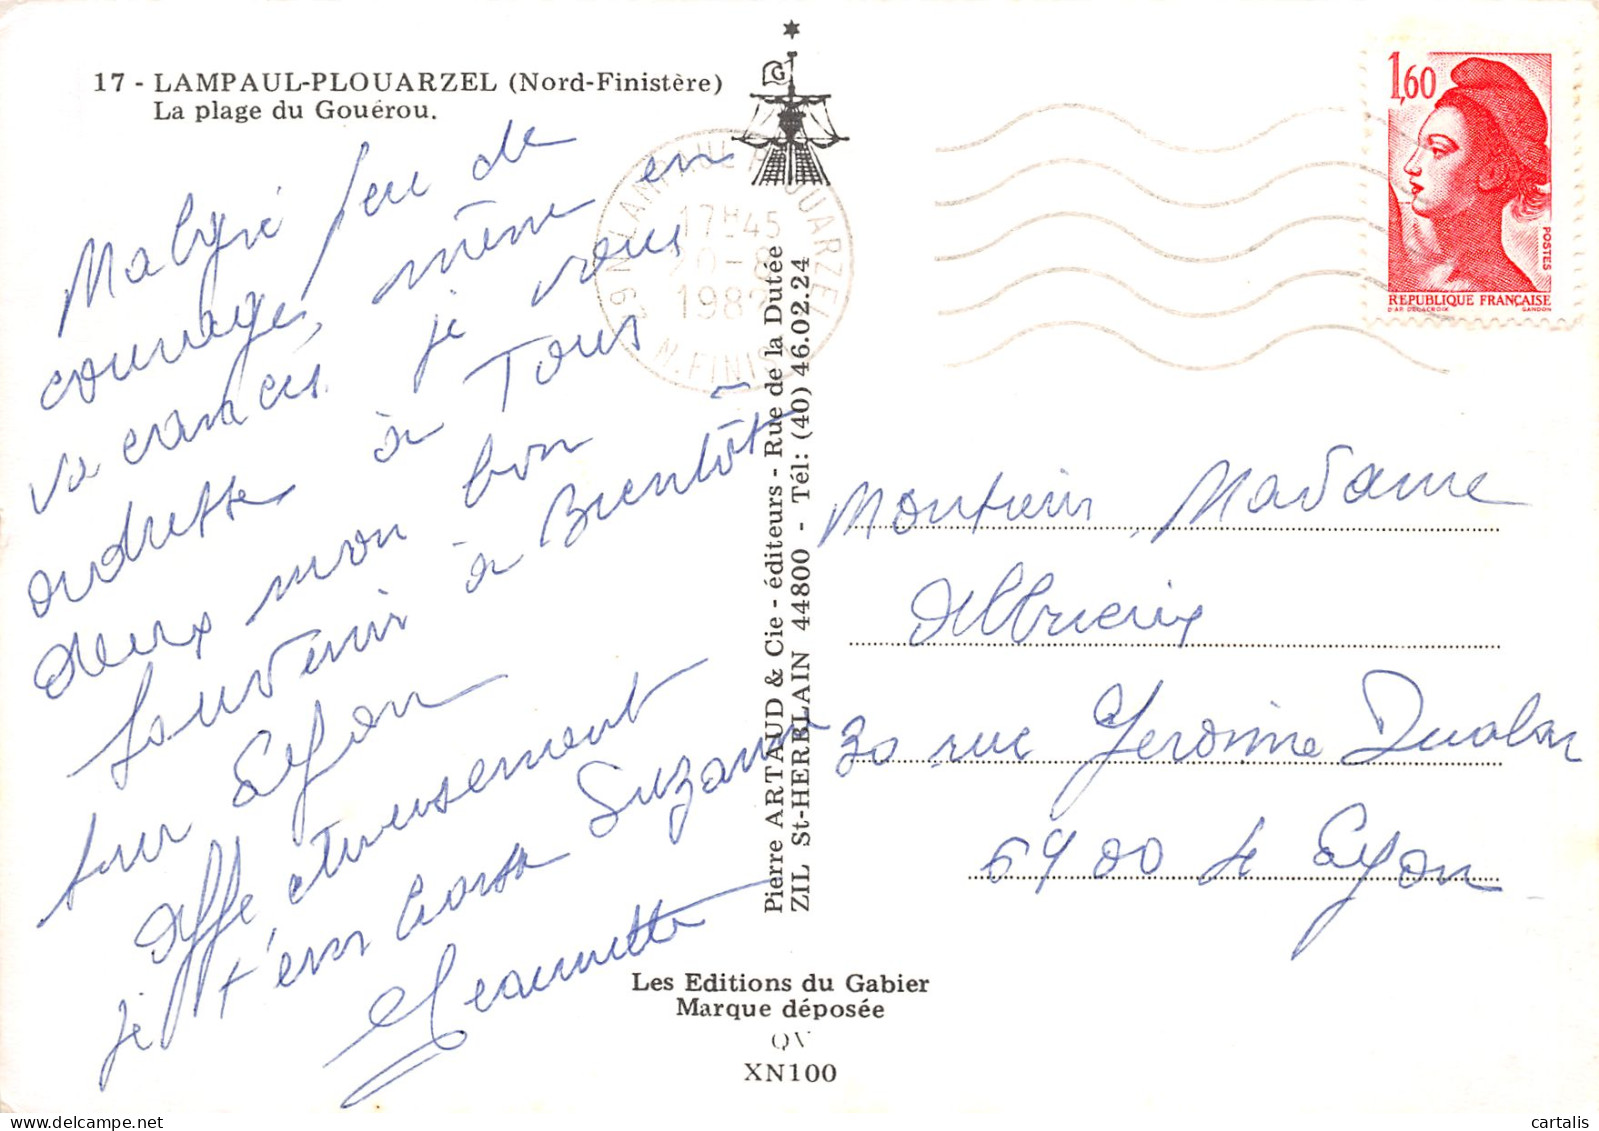 17 - LAMPAUL-PLOUARZEL (Nord-Finistère)
La plage du Gouérou.
Malgré peu de
courage, même en
vacances je vous
adresse à Tous
deux mon bon
souvenir à Bientôt
sur Lyon
Affectueusement
je t'embrasse Suzanne
Jeannette
G
29 N LAMPAUL PLOUARZEL
17H45
20-8
1982
N. FINIST
Pierre ARTAUD & Cie - éditeurs - Rue de la Dutée
ZIL St-HERBLAIN 44800 - Tél: (40) 46.02.24
1,60
POSTES
REPUBLIQUE FRANÇAISE
D'AP. DELACROIX GANDON
Monsieur Madame
30 rue Jeronime
69 00 Lyon
Les Editions du Gabier
Marque déposée
XN100
cartalis